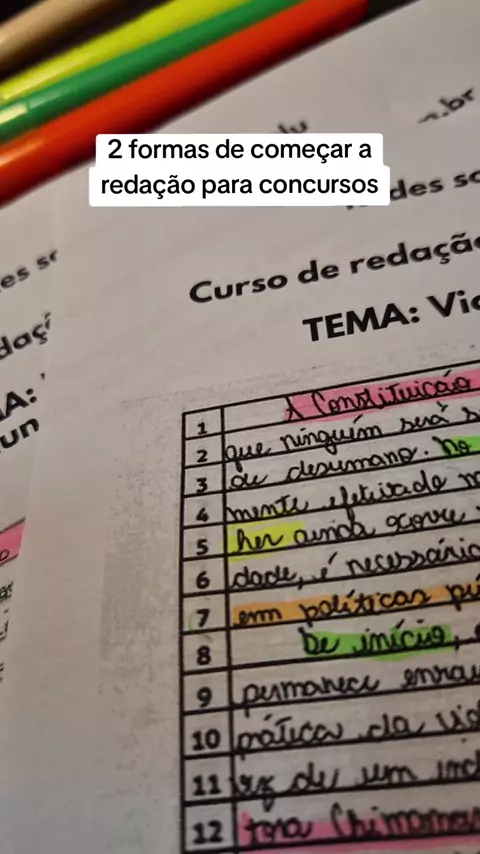 2 formas de começar a
redação para concursos
.br
des so
es sr
Curso de redação
TEMA: Vio
1 A Constituição
2 que ninguém será s
3 de desumano. No
4 mente efetivado n
5 her ainda ocorre
6 dade, é necessário
7 em políticas pú
8 De início,
9 permanece enrai
10 prática da vio
11 de um ind
12 tora Chimaman